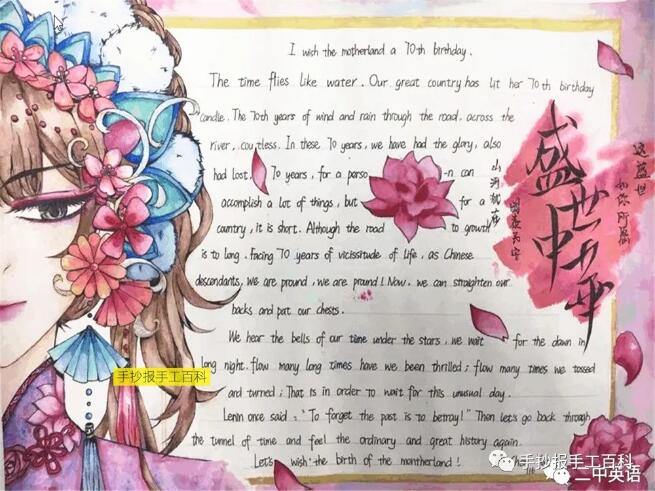 I wish the motherland a 70th birthday.
The time flies like water. Our great country has lit her 70th birthday
candle. The 70th years of wind and rain through the road. across the
river, coutless. In these 70 years, we have had the glory, also
had lost. 70 years, for a perso -n can
accomplish a lot of things, but for a
country, it is short. Although the road to growth
is to long. Facing 70 years of vicissitude of life, as Chinese
descendants, we are pround, we are pround! Now. we can straighten our
backs and pat our chests.
We hear the bells of our time under the stars, we wait for the dawn in
long night. flow many long times have we been thrilled; flow many times we tossed
and turned; That is in order to wait for this unusual day.
Lenin once said: "To forget the past is to betray!" Then let's go back through
the tunnel of time and feel the ordinary and great history again.
Let's wish the birth of the montherland!
盛世中华
这盛世
如你所愿
山河犹在
国泰民安
手抄报手工百科
手抄报手工百科
二中英语